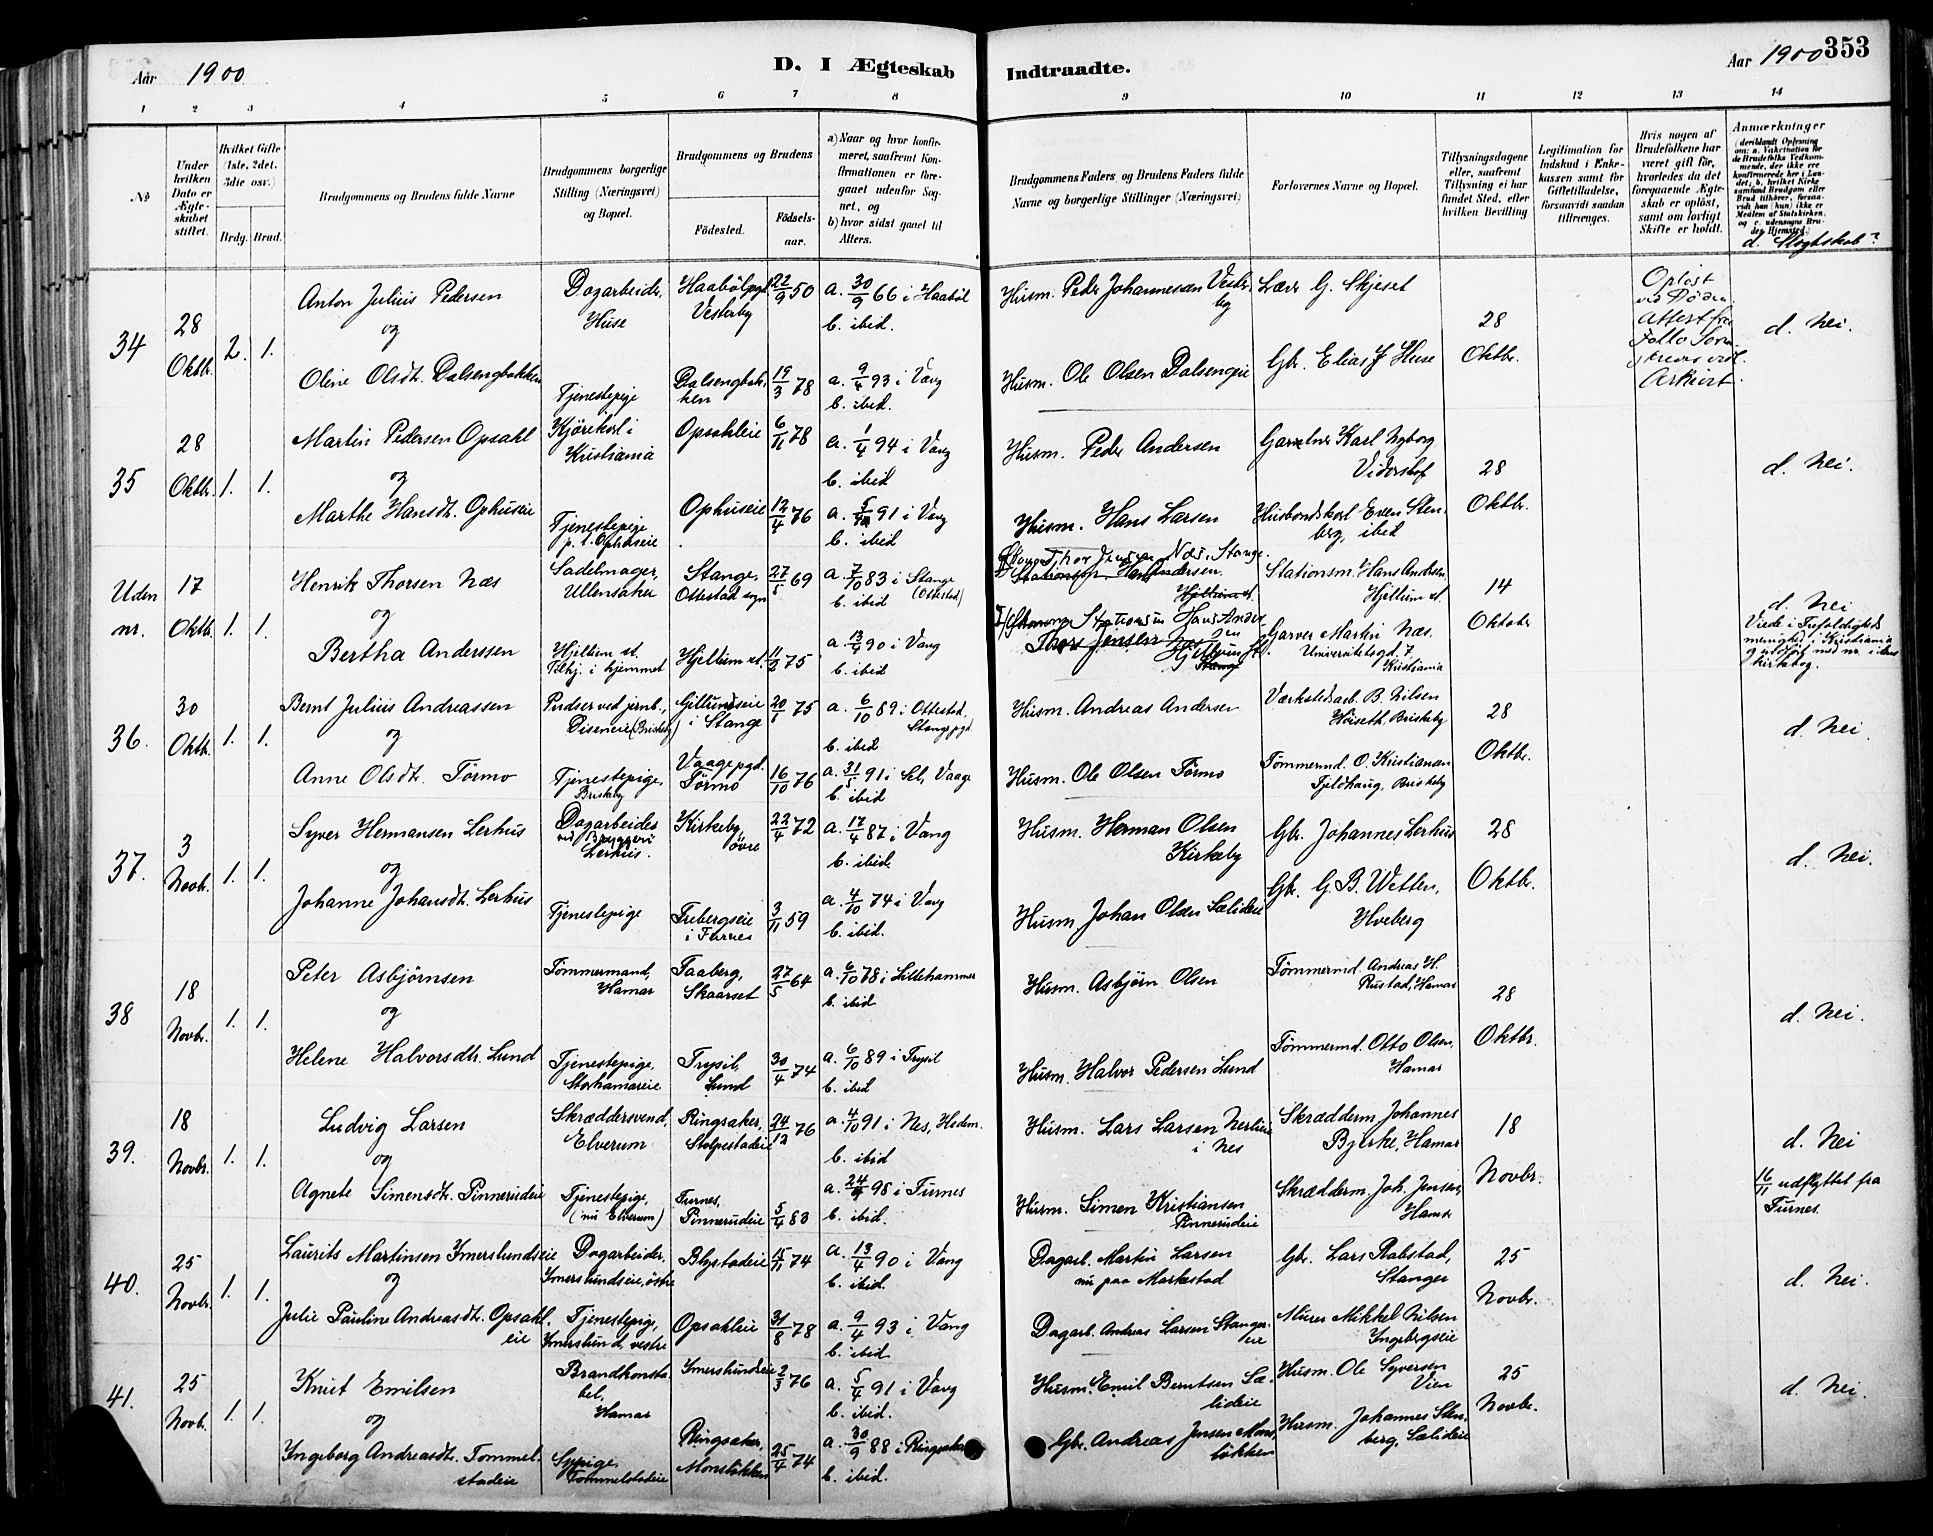 Aar 1900
D. I Ægteskab
Indtraadte.
Aar 1900
353
1 2 3 4 5 6 7 8 9 10 11 12 13 14
No
Under hvilken Dato er Ægteskabet stiftet.
Hvilket Gifte (1ste, 2det, 3die osv.)
Brdg. Brud.
Brudgommens og Brudens fulde Navne
Brudgommens borgerlige Stilling (Næringsvei) og Bopæl.
Brudgommens og Brudens
Födested.
Födselsaar.
a) Naar og hvor konfirmeret, saafremt Konfirmationen er foregaaet udenfor Sognet, og
b) hvor sidst gaaet til Alters.
Brudgommens Faders og Brudens Faders fulde Navne og borgerlige Stillinger (Næringsvei)
Forlovernes Navne og Bopæl.
Tillysningsdagene eller, saafremt Tillysning ei har fundet Sted, efter hvilken Bevilling
Legitimation for Indskud i Enkekassen samt for Giftetilladelse, forsaavidt saadan tiltrænges.
Hvis nogen af Brudefolkene har været gift för, hvorledes da det foregaaende Ægteskab er oplöst, samt om lovligt Skifte er holdt.
Anmærkninger
d. Slegtskab?
34 28 Oktbr. 2. 1.
Anton Julius Pedersen
og
Oline Olsdt. Dalsengbakken
Dagarbeider, Huse
Tjenestepige
Haabölpgd. Vesterby 22/9 50
Dalsengbakken 19/3 78
a. 30/9 66 i Haaböl
b. ibid.
a. 9/4 93 i Vang
b. ibid.
Husm. Peder Johannesen Vesterby
Husm. Ole Olsen Dalsengeie
Lærer G. Skjeset
Gbr. Elias J Huse
28 Oktbr.
Opløst ved Døden.
d. Nei.
35 28 Oktbr. 1. 1.
Martin Pedersen Opsahl
og
Marthe Hansdt. Ophuseie
Kjörekarl i Kristiania
Tjenestepige p. t. Ophuseie
Opsahleie 6/11 78
Ophuseie 12/4 76
a. 1/4 94 i Vang
b. ibid
a. 5/4 91 i Vang
b. ibid
Husm. Peder Andersen
Husm. Hans Larsen
Gartner Karl Nyborg Vidarshof
Husbondskarl Even Stenberg, ibid
28 Oktbr.
d. Nei.
Uden nr. 17 Oktbr. 1. 1.
Henrik Thorsen Næs
og
Bertha Anderssen
Sadelmager, Ullensaker
Hjellum st. Tilhj. i hjemmet
Stange, Ottestad sogn 27/5 69
Hjellum st. 11/2 75
a. 7/10 83 i Stange (Ottestad)
b. ibid
a. 13/4 90 i Vang
b. ibid
Thor Jensen Næs, Stange.
Stationsm. Hans Andersen, Hjellum st.
Stationsm Hans Andersen Hjellum St.
Thor Jensen Næs Stange
Stationsm. Hans Andersen, Hjellum st.
Garver Martin Næs. Universitetsgd. 7 Kristiania
14 Oktober
d. Nei
Viede i Trefoldigheds menighed i Kristiania
36. 30 Oktb. 1. 1.
Bernt Julius Andreassen
og
Anne Olsdt. Tørmo
Pudser ved jernb., Diseneie (Briskeby)
Tjenestepige, Briskeby
Gillundseie i Stange 20/1 75
Vaage pgd. Tørmo 16/10 76
a. 6/10 89 i Ottestad, Stange pgd.
b. ibid
a. 31/5 91 i Sel, Vaage
b. ibid
Husm. Andreas Andersen
Husm. Ole Olsen Tørmo
Værkstedsarb. B. Nilsen Høiseth Briskeby
Tømmermd. O. Kristiansen Fjeldhaug, Briskeby
28 Oktbr.
d. Nei.
37. 3 Novbr. 1. 1.
Syver Hermansen Lerhus
og
Johanne Johansdt. Lerhus
Dagarbeider ved Bryggeri Lerhus.
Tjenestepige
Kirkeby, øvre 22/4 72
Frebergseie i Furnes 3/11 59
a. 17/4 87 i Vang
b. ibid.
a. 4/10 74 i Vang
b. ibid.
Husm. Herman Olsen Kirkeby
Husm Johan Olsen Sælideie
Gbr. Johannes Lerhus
Gbr. G. B. Wetten, Hveberg
28 Oktbr.
d. Nei.
38 18 Novbr. 1. 1.
Peter Asbjørnsen
og
Helene Halvorsdtr. Lund
Tømmermand, Hamar
Tjenestepige, Storhamareie
Faaberg, Skaarset 27/5 64
Trysil, Lund 30/4 74
a. 6/10 78 i Lillehammer
b. ibid
a. 6/10 89 i Trysil
b. ibid
Husm. Asbjörn Olsen
Husm. Halvor Pedersen Lund
Tømmermd. Andreas H. Rustad, Hamar
Tømmermd. Otto Olsen, Hamar
28 Oktbr.
d. Nei.
39. 18 Novbr. 1. 1.
Ludvig Larsen
og
Agnete Simensdt. Pinnerudeie
Skræddersvend, Elverum
Tjenestepige, (nu Elverum)
Ringsaker, Stolpestadeie 24/12 76
Furnes, Pinnerudeie 5/4 83
a. 4/10 91 i Nes, Hedem.
b. ibid
a. 24/4 98 i Furnes
b. ibid.
Husm. Lars Larsen Nerlien i Nes
Husm. Simen Kristiansen Pinnerudeie
Skrædderm. Johannes Bjerke, Hamar
Skrædderm. Joh. Jensen, Hamar
18 Novbr.
d. Nei
16/11 udflyttet fra Furnes.
40. 25 Novbr. 1. 1.
Laurits Martinsen Ymerslundseie
og
Julie Pauline Andreasdt. Opsahleie
Dagarbeider, Ymerslundseie, östre
Tjenestepige, Ymerslund, vestre
Blystadeie 15/11 74
Opsahleie 31/8 78
a. 13/4 90 i Vang
b. ibid.
a. 9/4 93 i Vang
b. ibid
Dagarb. Martin Larsen nu paa Markestad
Dagarb. Andreas Larsen Stangereie
Gbr. Lars Rabstad, Stanger
Murer Mikkel Nilsen Yngebergseie
25 Novbr.
d. Nei.
41. 25 Novbr. 1. 1.
Knut Emilsen
og
Ingeborg Andreasdt. Tommelstadeie
Brandkonstabel, Hamar
Sypige, Tommelstadeie
Ymerslundseie 2/3 76
Ringsaker, Monslökken 25/4 74
a. 5/4 91 i Vang
b. ibid.
a. 30/9 88 i Ringsaker
b. ibid.
Husm. Emil Berntsen Sælideie
Gbr. Andreas Jensen Monslökken
Husm. Ole Syversen Vien
Husm. Johannes Stenberg, Sælideie
25 Novbr.
d. Nei.